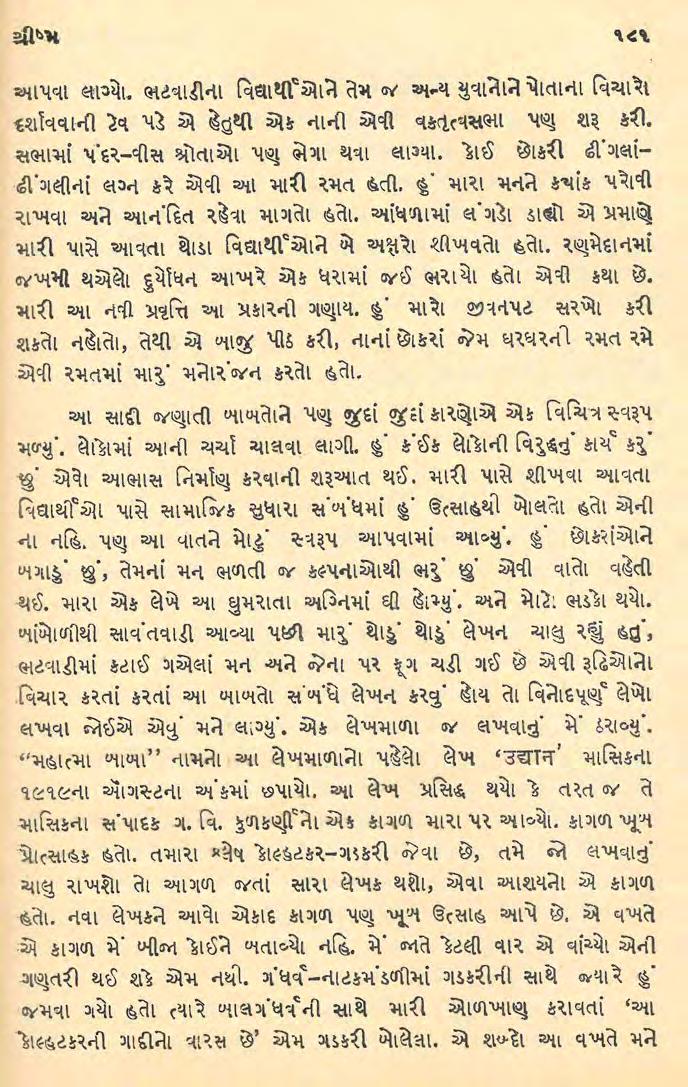 ગ્રીષ્મ ૧૮૧
આપવા લાગ્યો. ભટવાડીના વિદ્યાર્થીઓને તેમ જ અન્ય યુવાનોને પોતાના વિચારો
દર્શાવવાની ટેવ પડે એ હેતુથી એક નાની એવી વક્તૃત્વસભા પણ શરૂ કરી.
સભામાં પંદર–વીસ શ્રોતાઓ પણ ભેગા થવા લાગ્યા. કોઈ છોકરી ઢીંગલાં–
ઢીંગલીનાં લગ્ન કરે એવી આ મારી રમત હતી. હું મારા મનને ક્યાંક પરોવી
રાખવા અને આનંદિત રહેવા માગતો હતો. આંધળામાં લંગડો ડાહ્યો એ પ્રમાણે
મારી પાસે આવતા થોડા વિદ્યાર્થીઓને બે અક્ષરો શીખવતો હતો. રણમેદાનમાં
જખમી થએલો દુર્યોધન આખરે એક ધરામાં જઈ ભરાયો હતો એવી કથા છે.
મારી આ નવી પ્રવૃત્તિ આ પ્રકારની ગણાય. હું મારો જીવનપટ સરખો કરી
શકતો નહોતો, તેથી એ બાજુ પીઠ કરી, નાનાં છોકરાં જેમ ઘરઘરની રમત રમે
એવી રમતમાં મારું મનોરંજન કરતો હતો.
આ સાદી જણાતી બાબતોને પણ જુદાં જુદાં કારણોએ એક વિચિત્ર સ્વરૂપ
મળ્યું. લોકોમાં આની ચર્ચા ચાલવા લાગી. હું કંઈક લોકોની વિરુદ્ધનું કાર્ય કરું
છું એવો આભાસ નિર્માણ કરવાની શરૂઆત થઈ. મારી પાસે શીખવા આવતા
વિદ્યાર્થીઓ પાસે સામાજિક સુધારા સંબંધમાં હું ઉત્સાહથી બોલતો હતો એની
ના નહિ. પણ આ વાતને મોટું સ્વરૂપ આપવામાં આવ્યું. હું છોકરાંઓને
બગાડું છું, તેમનાં મન ભળતી જ કલ્પનાઓથી ભરું છું એવી વાતો વહેતી
થઈ. મારા એક લેખે આ ઘુમરાતા અગ્નિમાં ઘી હોમ્યું. અને મોટો ભડકો થયો.
બાંબોળીથી સાવંતવાડી આવ્યા પછી મારું થોડું થોડું લેખન ચાલુ રહ્યું હતું,
ભટવાડીમાં કટાઈ ગએલાં મન અને જેના પર ફૂગ ચડી ગઈ છે એવી રૂઢિઓનો
વિચાર કરતાં કરતાં આ બાબતો સંબંધે લેખન કરવું હોય તો વિનોદપૂર્ણ લેખો
લખવા જોઈએ એવું મને લાગ્યું. એક લેખમાળા જ લખવાનું મેં ઠરાવ્યું.
“મહાત્મા બાબા” નામનો આ લેખમાળાનો પહેલો લેખ ‘उद्यान’ માસિકના
૧૯૧૯ના ઑગસ્ટના અંકમાં છપાયો. આ લેખ પ્રસિદ્ધ થયો કે તરત જ તે
માસિકના સંપાદક ગ. વિ. કુળકર્ણીનો એક કાગળ મારા પર આવ્યો. કાગળ ખૂબ
પ્રોત્સાહક હતો. તમારા શ્લેષ કોલ્હટકર–ગડકરી જેવા છે, તમે જો લખવાનું
ચાલુ રાખશો તો આગળ જતાં સારા લેખક થશો, એવા આશયનો એ કાગળ
હતો. નવા લેખકને આવો એકાદ કાગળ પણ ખૂબ ઉત્સાહ આપે છે. એ વખતે
એ કાગળ મેં બીજા કોઈને બતાવ્યો નહિ. મેં જાતે કેટલી વાર એ વાંચ્યો એની
ગણતરી થઈ શકે એમ નથી. ગંધર્વ–નાટકમંડળીમાં ગડકરીની સાથે જ્યારે હું
જમવા ગયો હતો ત્યારે બાલગંધર્વની સાથે મારી ઓળખાણ કરાવતાં ‘આ
કોલ્હટકરની ગાદીનો વારસ છે’ એમ ગડકરી બોલેલા. એ શબ્દો આ વખતે મને